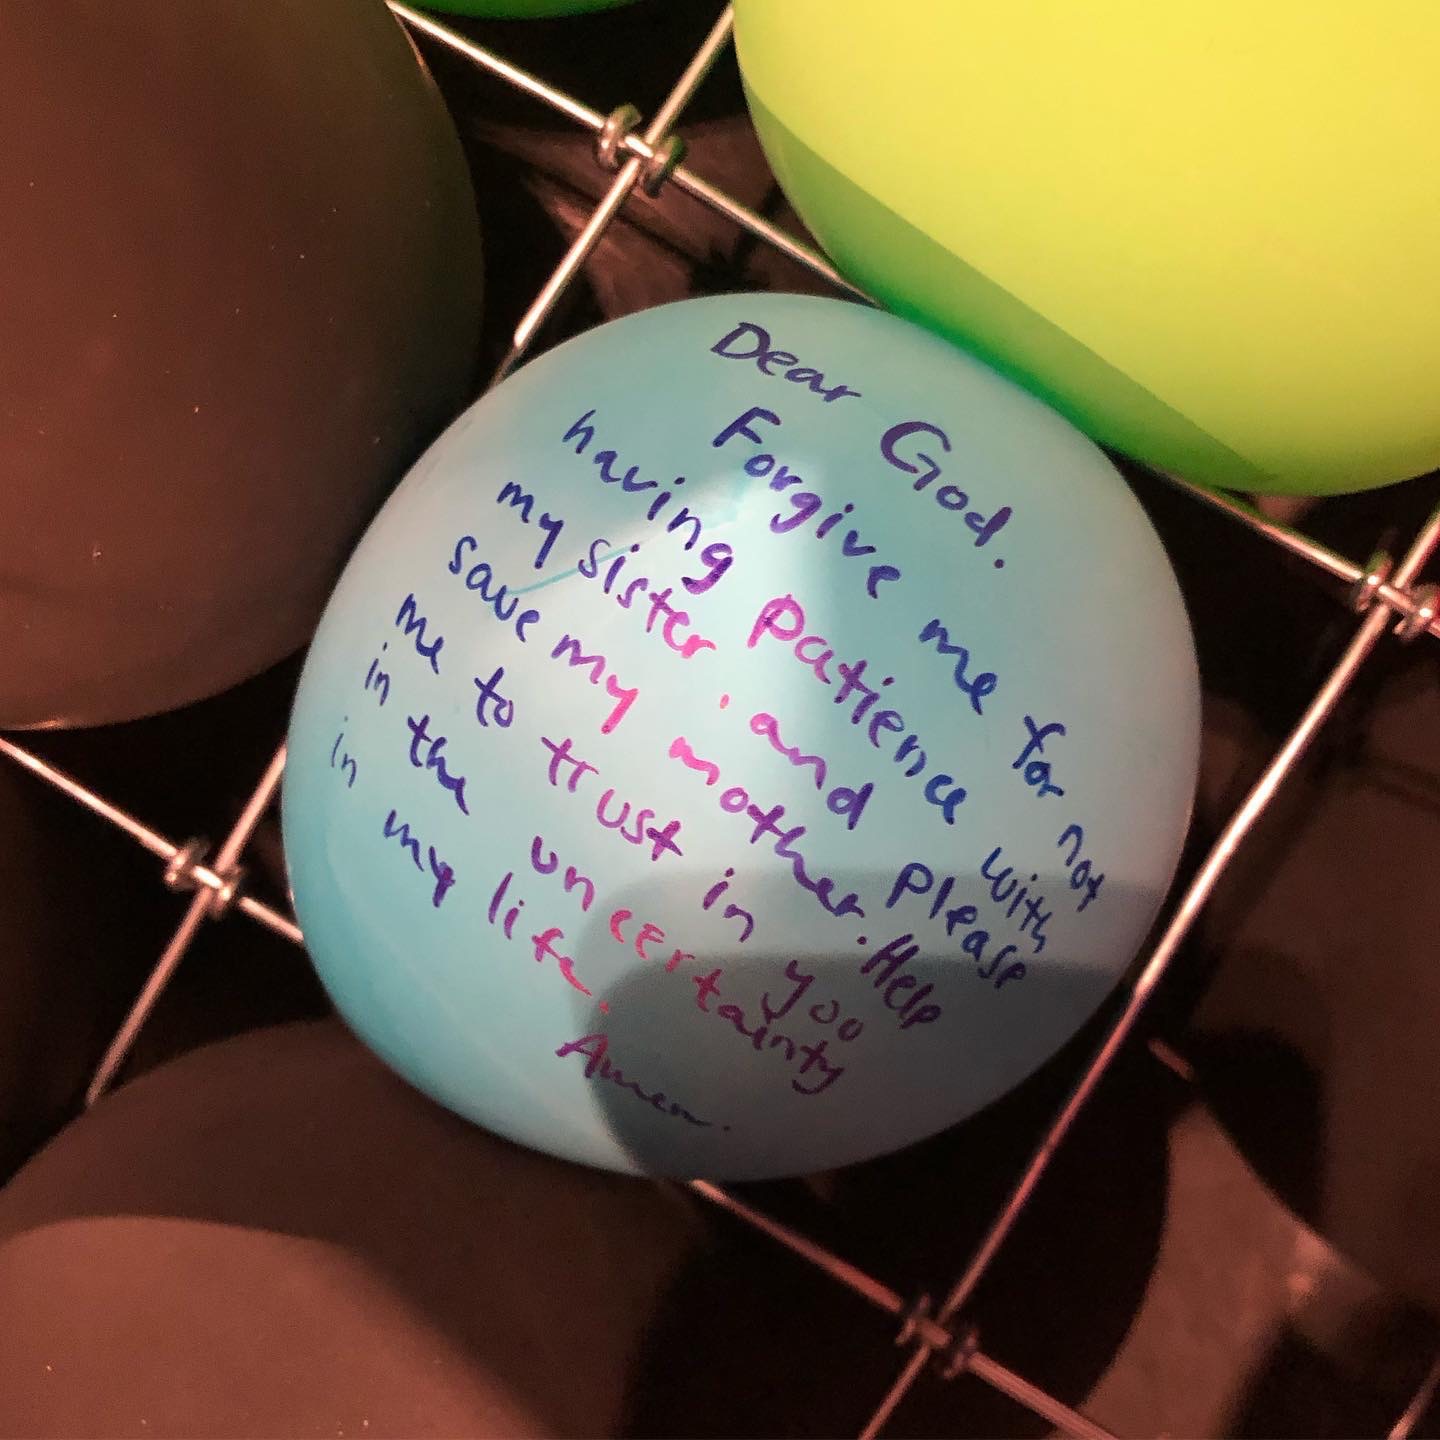 Dear God.
Forgive me for not
having patience with
my sister. and please
save my mother. Help
me to trust in you
in the uncertainty
in my life.
Amen.